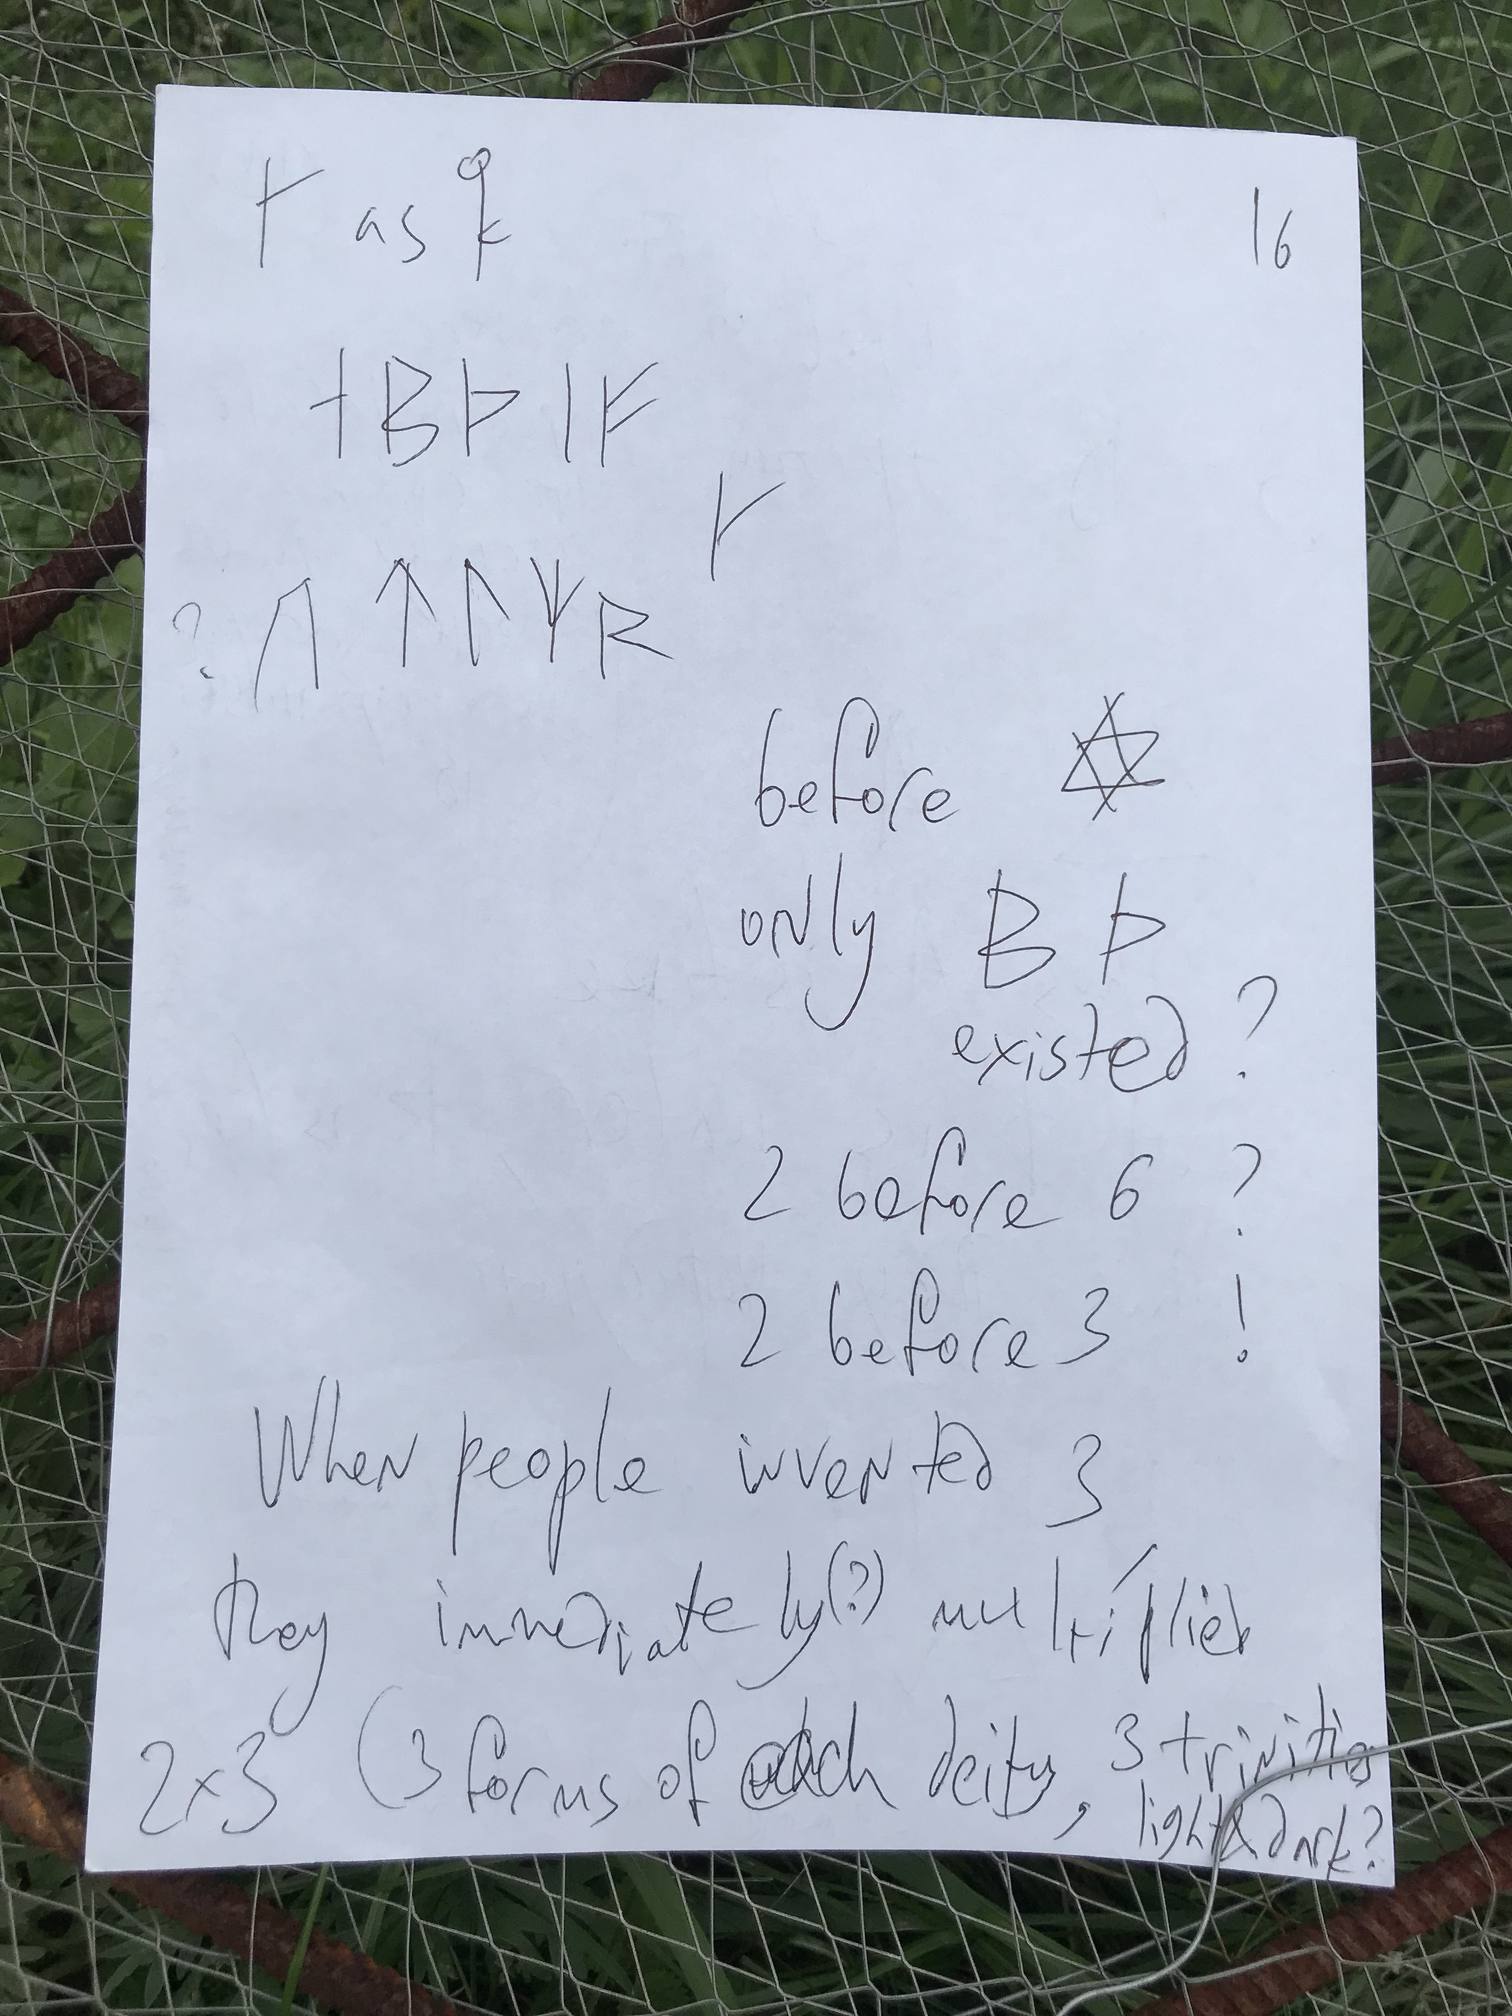 ᚴ as k 16
ᛆ B ᚦ ᛁ ᚠ
ᚴ
? ᚢ ᛏ ᛚ ᛘ R
before ✡
only B ᚦ
existed ?
2 before 6 ?
2 before 3 !
When people invented 3
they immediately(?) multiplied
2×3 (3 forms of each deity, 3 trinities
light & dark?